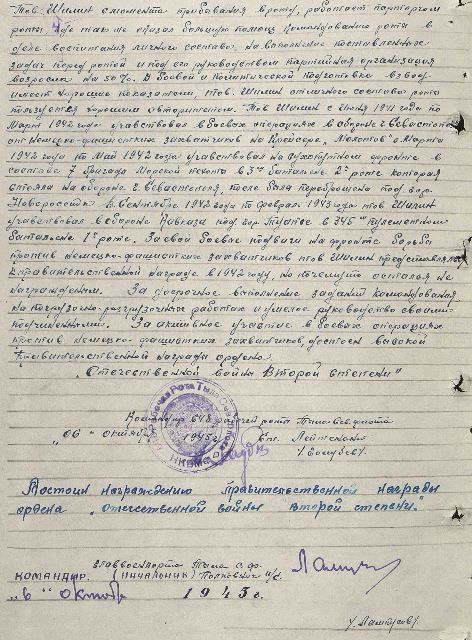 Тов. Шилин с момента прибывания в роту, работает парторгом
роты, где так же оказал большую помощь командованию роты в
деле воспитания личного состава, на выполнение поставленных
задач перед ротой и под его руководством партийная организация
возросла на 50%. В боевой и политической подготовке взвод
имеет хорошие показатели, тов. Шилин от личного состава роты
пользуется хорошим авторитетом. Тов. Шилин с Июня 1941 года по
Март 1942 года учавствовал в боевых операциях в обороне г. Севастополя
от немецко-фашистских захватчиков на Крейсере "Молотов" с Марта
1942 года по Май 1942 года учавствовал на сухопутном фронте в
составе 7 бригада Морской пехоты в 3м батальоне 2й роте которая
стояла на обороне г. Севастополя, после была переброшена под гор.
Новороссийск в Сентябре 1942 года по февраль 1943 года тов. Шилин
учавствовал в обороне Кавказа под гор. Туапсе в 345м пулеметном
батальоне 1й роте. За свой боевые подвиги на фронте борьбы
против немецко-фашистских захватчиков тов. Шилин представлялся
к правительственной награде в 1942 году, но почему то остался не
награжденным. За досрочное выполнение заданий командования
на погрузочно-разгрузочных работах и умелое руководство своими
подчиненными. За активное участие в боевых операциях
против немецко-фашистских захватчиков, достоен высокой
Правительственной награды ордена
"Отечественной войны Второй степени"
Командир 648 рабочей роты Тыла Сев. флота
"06" октября 1945 г. Лейтенант
/Голубев/.
Достоин награждению Правительственной награды
ордена "Отечественной войны второй степени."
Тыла С.Ф.
КОМАНДИР (НАЧАЛЬНИК) Полковник и/с.
"6" октября 1945 г.